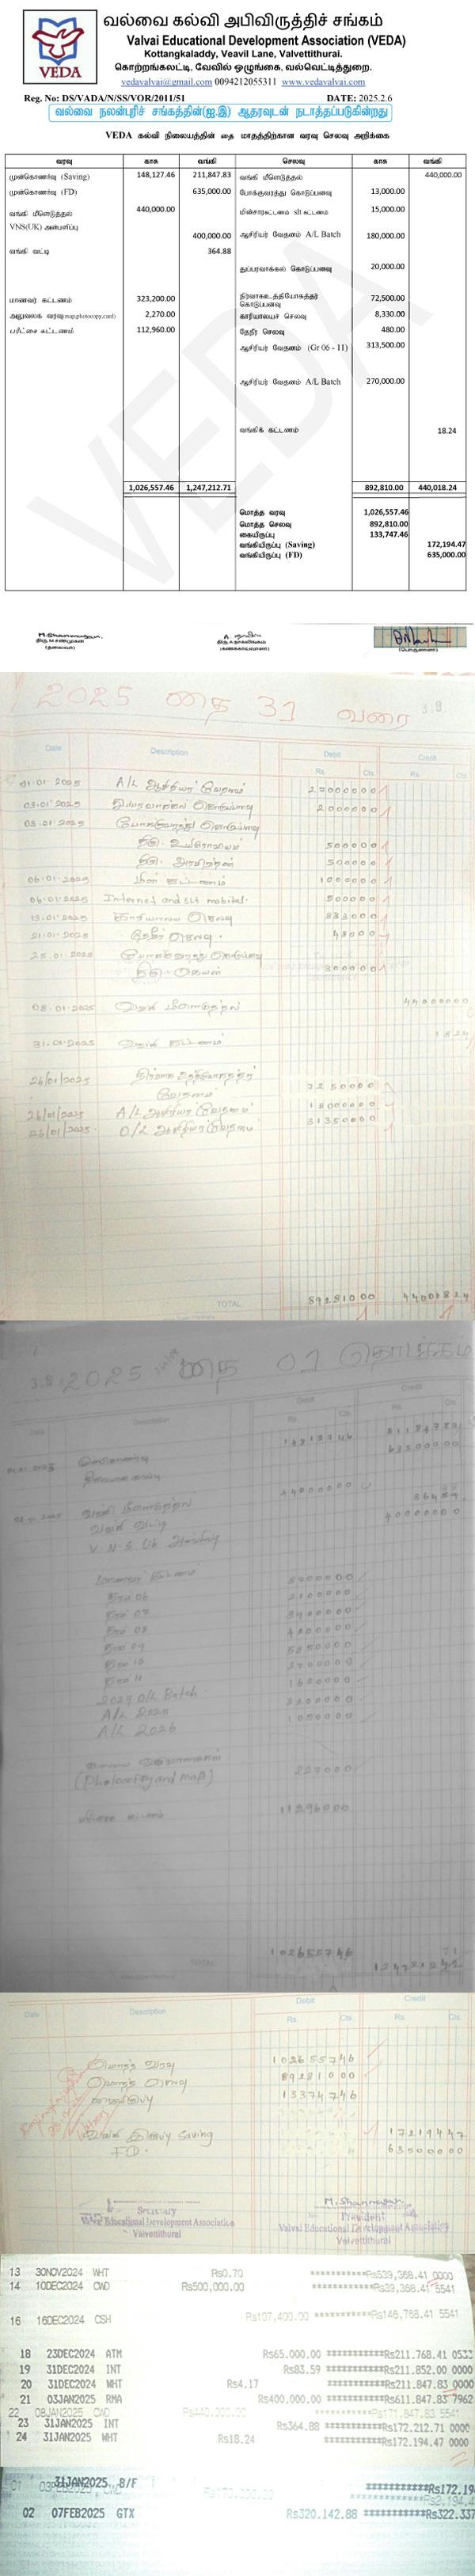 வல்வை கல்வி அபிவிருத்திச் சங்கம்
Valvai Educational Development Association (VEDA)
Kottangkaladdy, Veavil Lane, Valvettithurai.
கொற்றங்கலட்டி, வேவில் ஒழுங்கை, வல்வெட்டித்துறை.
vedavalvai@gmail.com 0094212055311 www.vedavalvai.com
VEDA
Reg. No: DS/VADA/N/SS/VOR/2011/51 DATE: 2025.2.6
வல்வை நலன்புரிச் சங்கத்தின்(ஐ.இ) ஆதரவுடன் நடாத்தப்படுகின்றது
VEDA கல்வி நிலையத்தின் தை மாதத்திற்கான வரவு செலவு அறிக்கை
வரவு காசு வங்கி செலவு காசு வங்கி
முன்கொணர்வு (Saving) 148,127.46 211,847.83 வங்கி மீளெடுத்தல் 440,000.00
முன்கொணர்வு (FD) 635,000.00 போக்குவரத்து கொடுப்பனவு 13,000.00
வங்கி மீளெடுத்தல் 440,000.00 மின்சாரகட்டணம் slt கட்டணம் 15,000.00
VNS(UK) அன்பளிப்பு 400,000.00 ஆசிரியர் வேதனம் A/L Batch 180,000.00
வங்கி வட்டி 364.88
துப்பரவாக்கல் கொடுப்பனவு 20,000.00
மாணவர் கட்டணம் 323,200.00 நிர்வாகஉத்தியோகத்தர் கொடுப்பனவு 72,500.00
அலுவலக வரவு 2,270.00 காரியாலயச் செலவு 8,330.00
பரீட்சை கட்டணம் 112,960.00 தேநீர் செலவு 480.00
ஆசிரியர் வேதனம் (Gr 06 - 11) 313,500.00
ஆசிரியர் வேதனம் A/L Batch 270,000.00
வங்கிக் கட்டணம் 18.24
1,026,557.46 1,247,212.71 892,810.00 440,018.24
மொத்த வரவு 1,026,557.46
மொத்த செலவு 892,810.00
கையிருப்பு 133,747.46
வங்கியிருப்பு (Saving) 172,194.47
வங்கியிருப்பு (FD) 635,000.00
2025 தை 31 வரை
Date Description Debit Credit
Rs. Cts. Rs. Cts.
01-01-2025 A/L ஆசிரியர் வேதனம் 27000000
03-01-2025 துப்பரவாக்கல் கொடுப்பனவு 2000000
03-01-2025 போக்குவரத்து கொடுப்பனவு
500000
500000
06-01-2025 மின் கட்டணம் 1000000
06-01-2025 Internet and slt mobitel. 500000
13-01-2025 காரியாலய செலவு 833000
21-01-2025 தேநீர் செலவு 48000
25-01-2025 போக்குவரத்து கொடுப்பனவு
300000
08-01-2025 வங்கி மீளெடுத்தல் 44000000
31-01-2025 வங்கி கட்டணம் 1824
26/01/2025 நிர்வாக உத்தியோகத்தர் வேதனம் 7250000
26/01/2025 A/L ஆசிரியர் வேதனம் 18000000
26/01/2025 O/L ஆசிரியர் வேதனம் 31350000
TOTAL 89281000 44001824
2025 தை 01 தொடக்கம்
Description Debit Credit
வங்கி மீளெடுத்தல் 44000000
வங்கி வட்டி 36488
V.N.S Uk 40000000
மாணவர் கட்டணம்
தரம் 06
தரம் 07
தரம் 08
தரம் 09
தரம் 10
தரம் 11
A/L 2025
A/L 2026
(Photocopy and map) 227000
பரீட்சை கட்டணம் 11296000
TOTAL 102655746
Date Description Debit Credit
Rs. Cts. Rs. Cts.
மொத்த வரவு 102655746
மொத்த செலவு 89281000
கையிருப்பு 13374746
வங்கி இருப்பு Saving 17219447
FD. 63500000
Secretary
Educational Development Association
Valvettithurai
M.Shanmugan
President
Valvai Educational Development Association
Valvettithurai
13 30NOV2024 WHT Rs0.70 ***********Rs539,368.41 0000
14 10DEC2024 CWD Rs500,000.00 ***********Rs39,368.41 5541
16 16DEC2024 CSH Rs107,400.00 ***********Rs146,768.41 5541
18 23DEC2024 ATM Rs65,000.00 ***********Rs211,768.41 0533
19 31DEC2024 INT Rs83.59 ***********Rs211,852.00 0000
20 31DEC2024 WHT Rs4.17 ***********Rs211,847.83 0000
21 03JAN2025 RMA Rs400,000.00 ***********Rs611,847.83 7962
22 08JAN2025 CWD Rs440,000.00 ***********Rs171,847.83 5541
23 31JAN2025 INT Rs364.88 ***********Rs172,212.71 0000
24 31JAN2025 WHT Rs18.24 ***********Rs172,194.47 0000
31JAN2025 B/F ***********Rs172,19
01 03FEB2025 CWD
02 07FEB2025 GTX Rs320,142.88 ***********Rs322,337